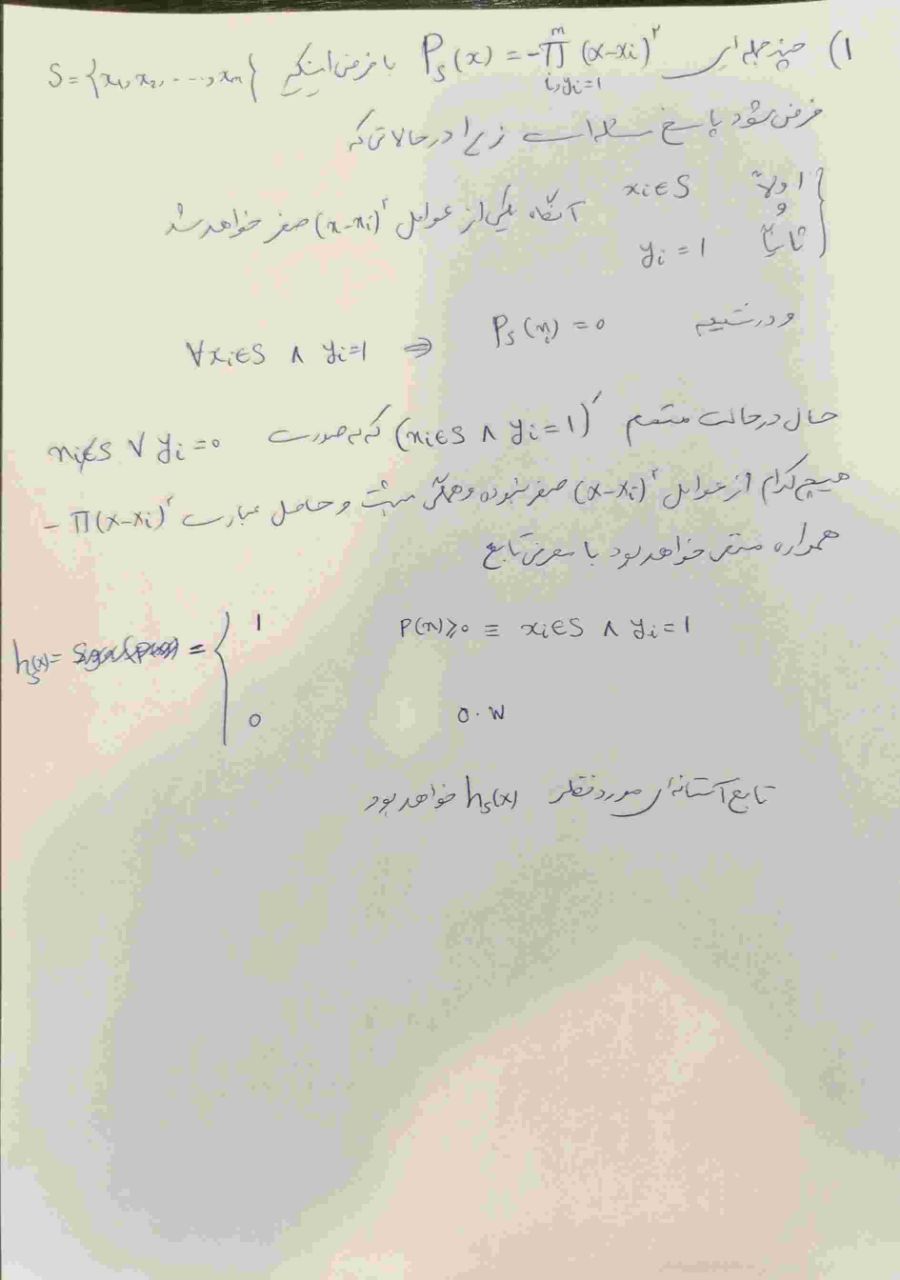 ۱) چندجمله‌ای P_S(x) = -∏_{i, y_i=1}^{m} (x-x_i)^۲ با فرض اینکه S={x_1, x_2, ..., x_m}
فرض شود پاسخ مسئله است زیرا در حالاتی که
اولاً x_i∈S
و آنگاه یکی از عوامل (x-x_i)^۲ صفر خواهد شد
ثانیاً y_i = 1
و در نتیجه P_S(x_i) = 0 ⇐ ∀x_i∈S ∧ y_i=1
حال در حالت متمم (x_i∈S ∧ y_i=1)′ که به صورت x_i∉S ∨ y_i=0
هیچ کدام از عوامل (x-x_i)^۲ صفر نبوده و همگی مثبت و حاصل عبارت -∏(x-x_i)^۲
همواره منفی خواهد بود با معرفی تابع
h_S(x) = = { 1 P(x)≥0 ≡ x_i∈S ∧ y_i=1
0 o.w
تابع آستانه‌ای مورد نظر h_S(x) خواهد بود